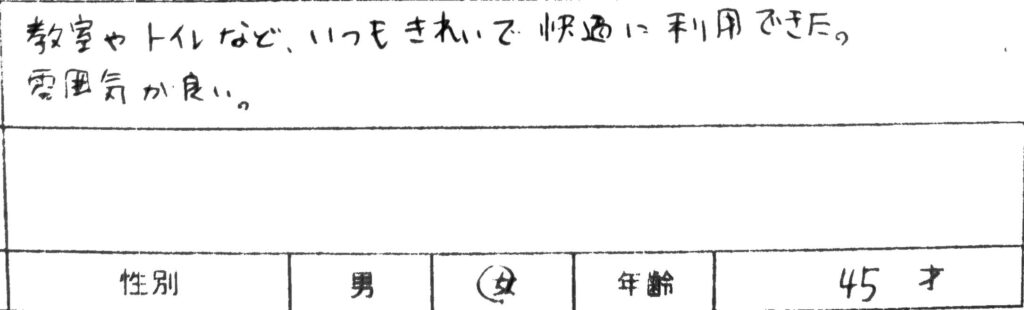 教室や トイレなど、いつもきれいで 快適に 利用できた。
雰囲気が良い。
性別 男 女 年齢 45 才